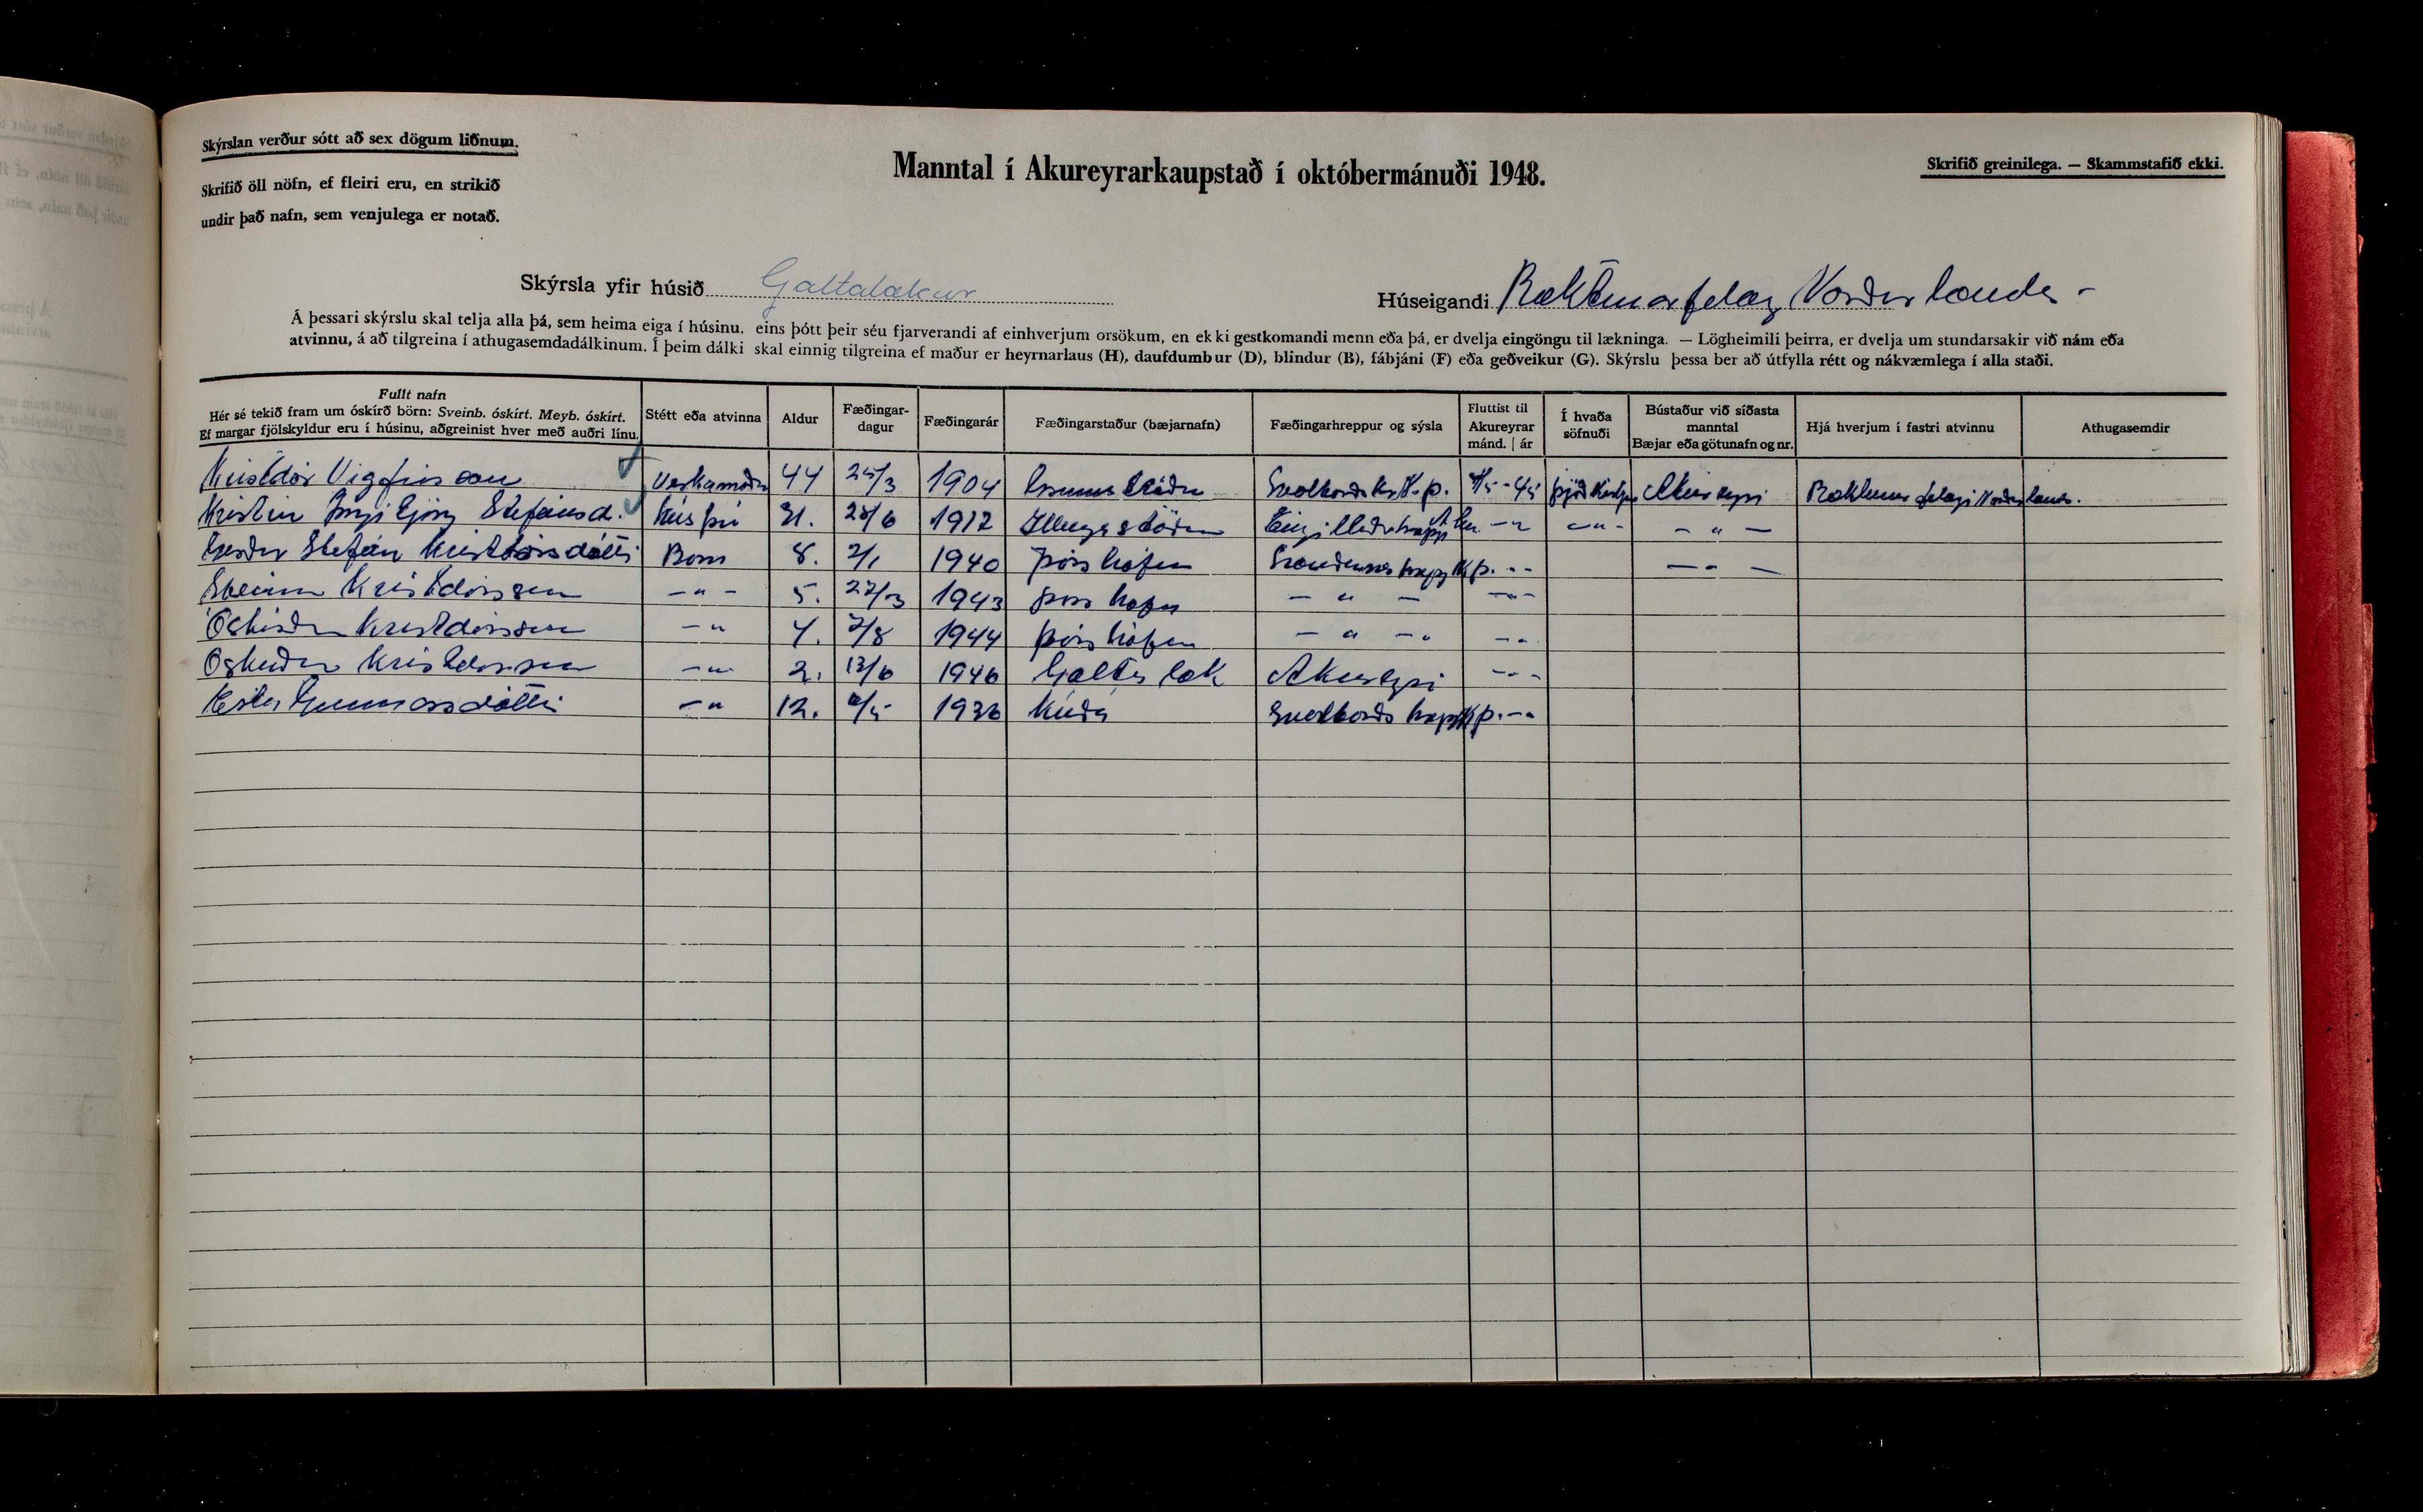 Skýrslan verður sótt að sex dögum liðnum.
Skrifið öll nöfn, ef fleiri eru, en strikið
undir það nafn, sem venjulega er notað.
Manntal í Akureyrarkaupstað í októbermánuði 1948.
Skrifið greinilega. — Skammstafið ekki.
Skýrsla yfir húsið Galtalækur
Húseigandi Ræktunarfelag Norðurlands -
Á þessari skýrslu skal telja alla þá, sem heima eiga í húsinu, eins þótt þeir séu fjarverandi af einhverjum orsökum, en ekki gestkomandi menn eða þá, er dvelja eingöngu til lækninga. — Lögheimili þeirra, er dvelja um stundarsakir við nám eða
atvinnu, á að tilgreina í athugasemdadálkinum. Í þeim dálki skal einnig tilgreina ef maður er heyrnarlaus (H), daufdumbur (D), blindur (B), fábjáni (F) eða geðveikur (G). Skýrslu þessa ber að útfylla rétt og nákvæmlega í alla staði.
Fullt nafn
Hér sé tekið fram um óskírð börn: Sveinb. óskírt. Meyb. óskírt.
Ef margar fjölskyldur eru í húsinu, aðgreinist hver með auðri línu.
Stétt eða atvinna
Aldur
Fæðingar-
dagur
Fæðingarár
Fæðingarstaður (bæjarnafn)
Fæðingarhreppur og sýsla
Fluttist til
Akureyrar
mánd. | ár
Í hvaða
söfnuði
Bústaður við síðasta
manntal
Bæjar eða götunafn og nr.
Hjá hverjum í fastri atvinnu
Athugasemdir
Kristdór Vigfússon Verkamaður 44 25/3 1904 N.þ. Akureyri Ræktunarfelagi Norðurlands.
Kristín Ingibjörg Stefánsd. Húsfrú 31. 1917 Illugastöðum — " —
Stefán Kristdórsdóttir Born 8. 2/1 1940 Þórshöfn N.þ. — " —
Kristdórsson — " — 5. 27/3 1943 Þórshöfn — " —
Kristdórsson — " 4. 1944 Þórshöfn — " —
Kristdórsson — " 2. 13/6 1946 Galtalæk Akureyri
Ester Gunnarsdóttir — " 12. 1936 Kúða Svalbarðshrepp N.þ.